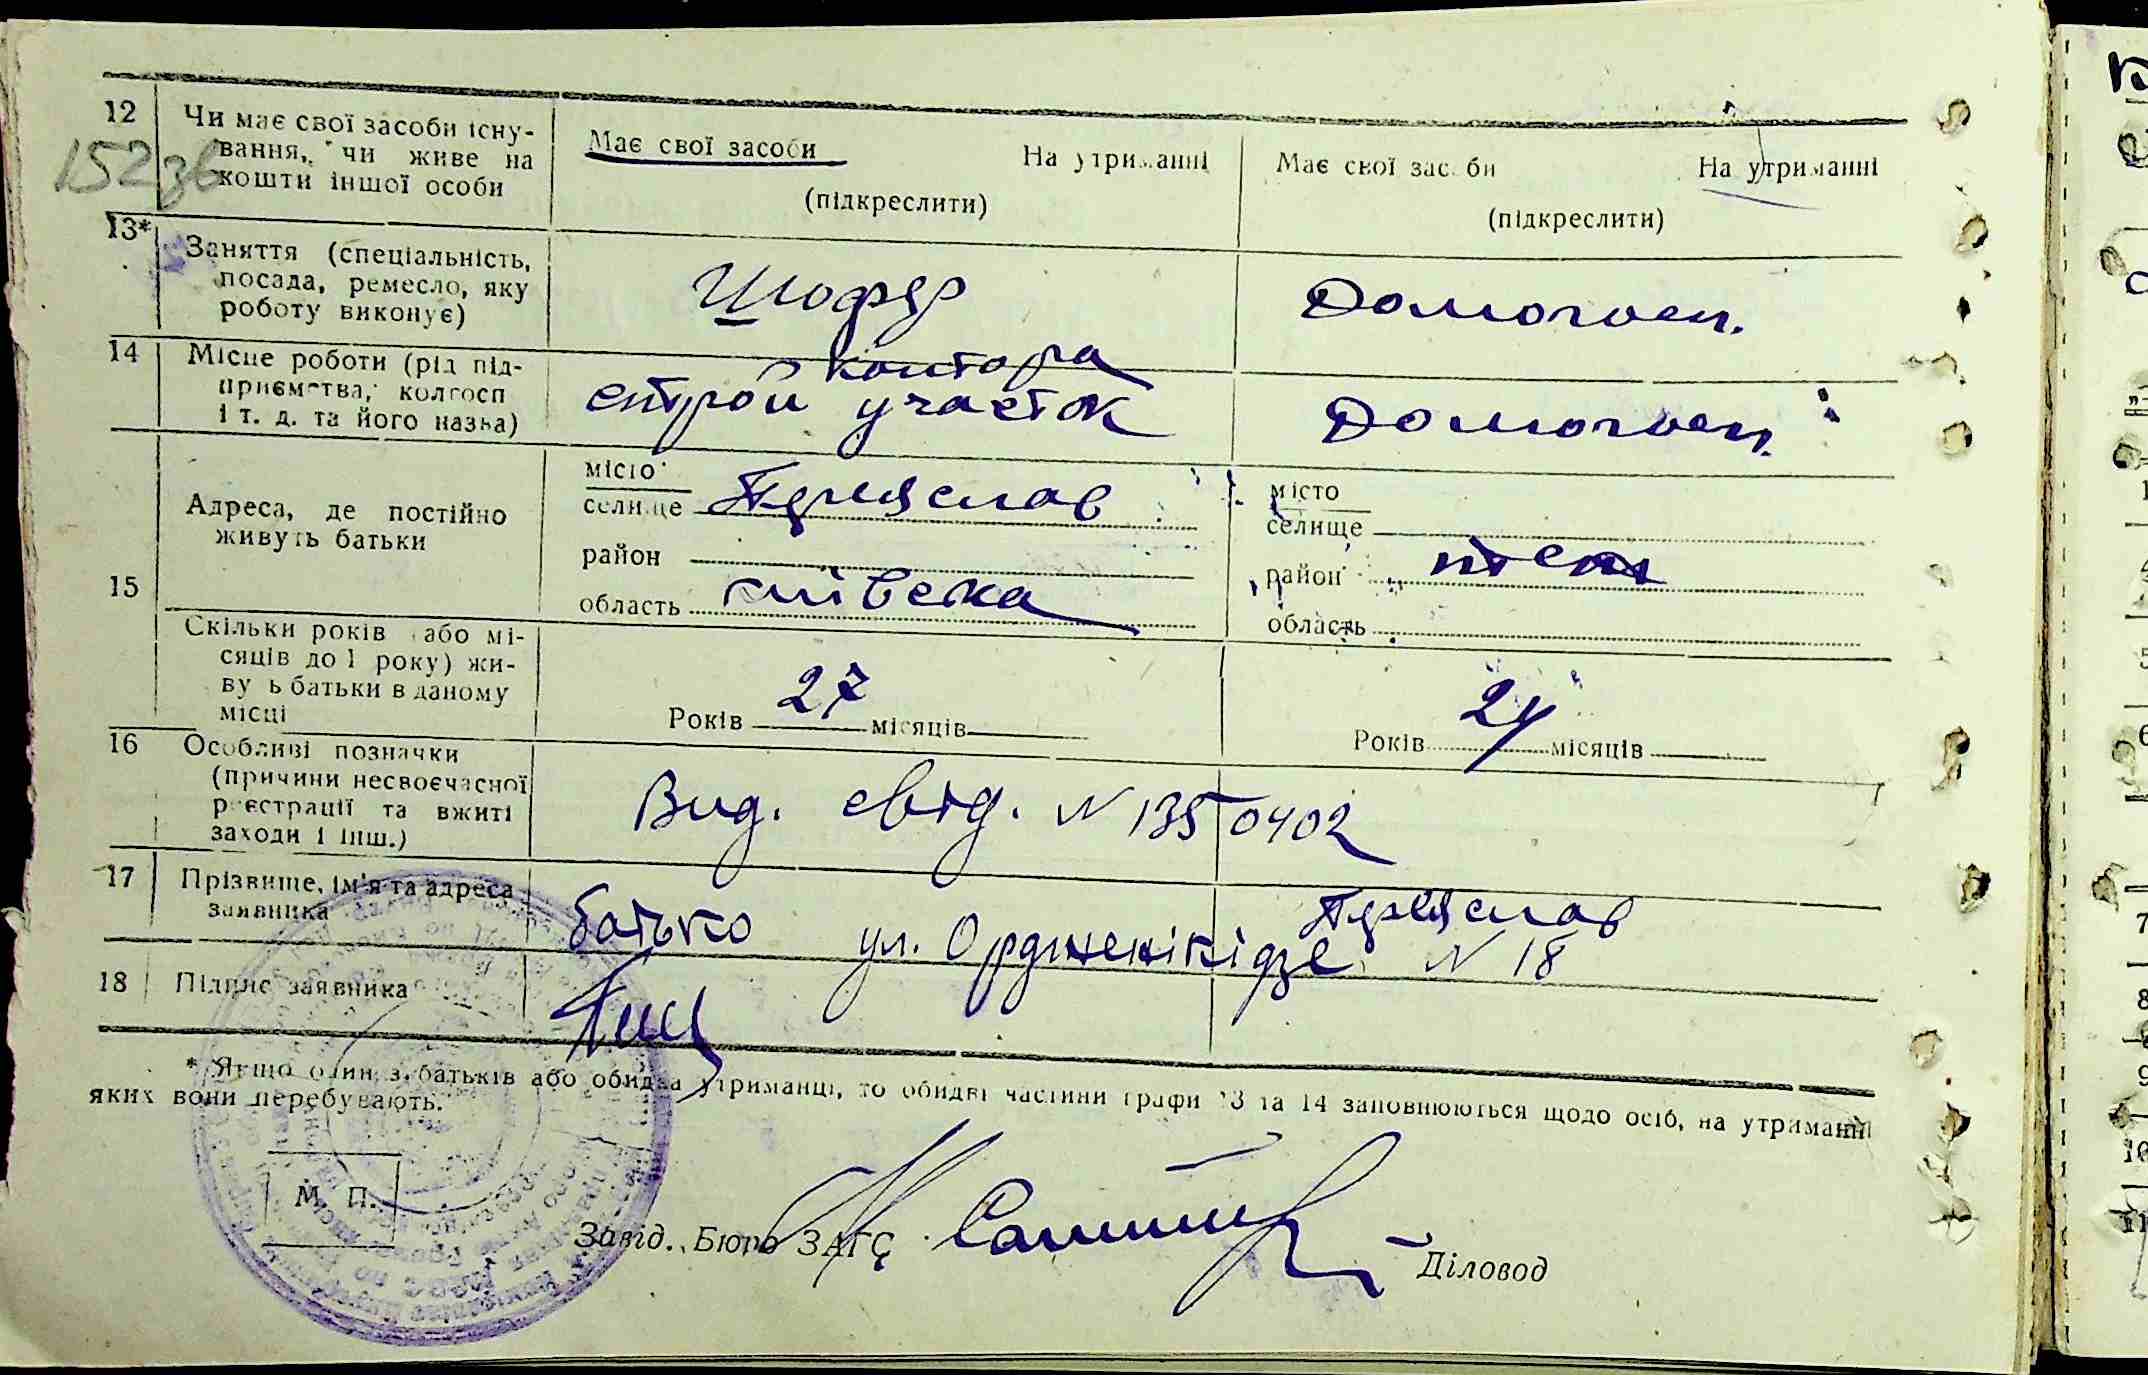 12 Чи має свої засоби існу-
вання, чи живе на
кошти іншої особи
Має свої засоби На утриманні
(підкреслити)
Має свої засоби На утриманні
(підкреслити)
152 зв
13* Заняття (спеціальність,
посада, ремесло, яку
роботу виконує)
Шофер
Домогосп.
14 Місце роботи (рід під-
приємства, колгосп
і т. д. та його назва)
контора
строй участок
Домогосп.
15 Адреса, де постійно
живуть батьки
місто
селище Переяслав
район
область київська
місто
селище
район
область
Скільки років або мі-
сяців до 1 року) жи-
вуть батьки в даному
місці
Років 27 місяців
Років 24 місяців
16 Особливі позначки
(причини несвоєчасної
реєстрації та вжиті
заходи і інш.)
Вид. свід. N 1350402
17 Прізвище, ім'я та адреса
заявника
Переяслав
батько ул. Орджонікідзе N 18
18 Підпис заявника
* Якщо один з батьків або обидва утриманці, то обидві частини графи 13 та 14 заповнюються щодо осіб, на утриманні
яких вони перебувають.
М. П.
Завід. Бюро ЗАГС Діловод